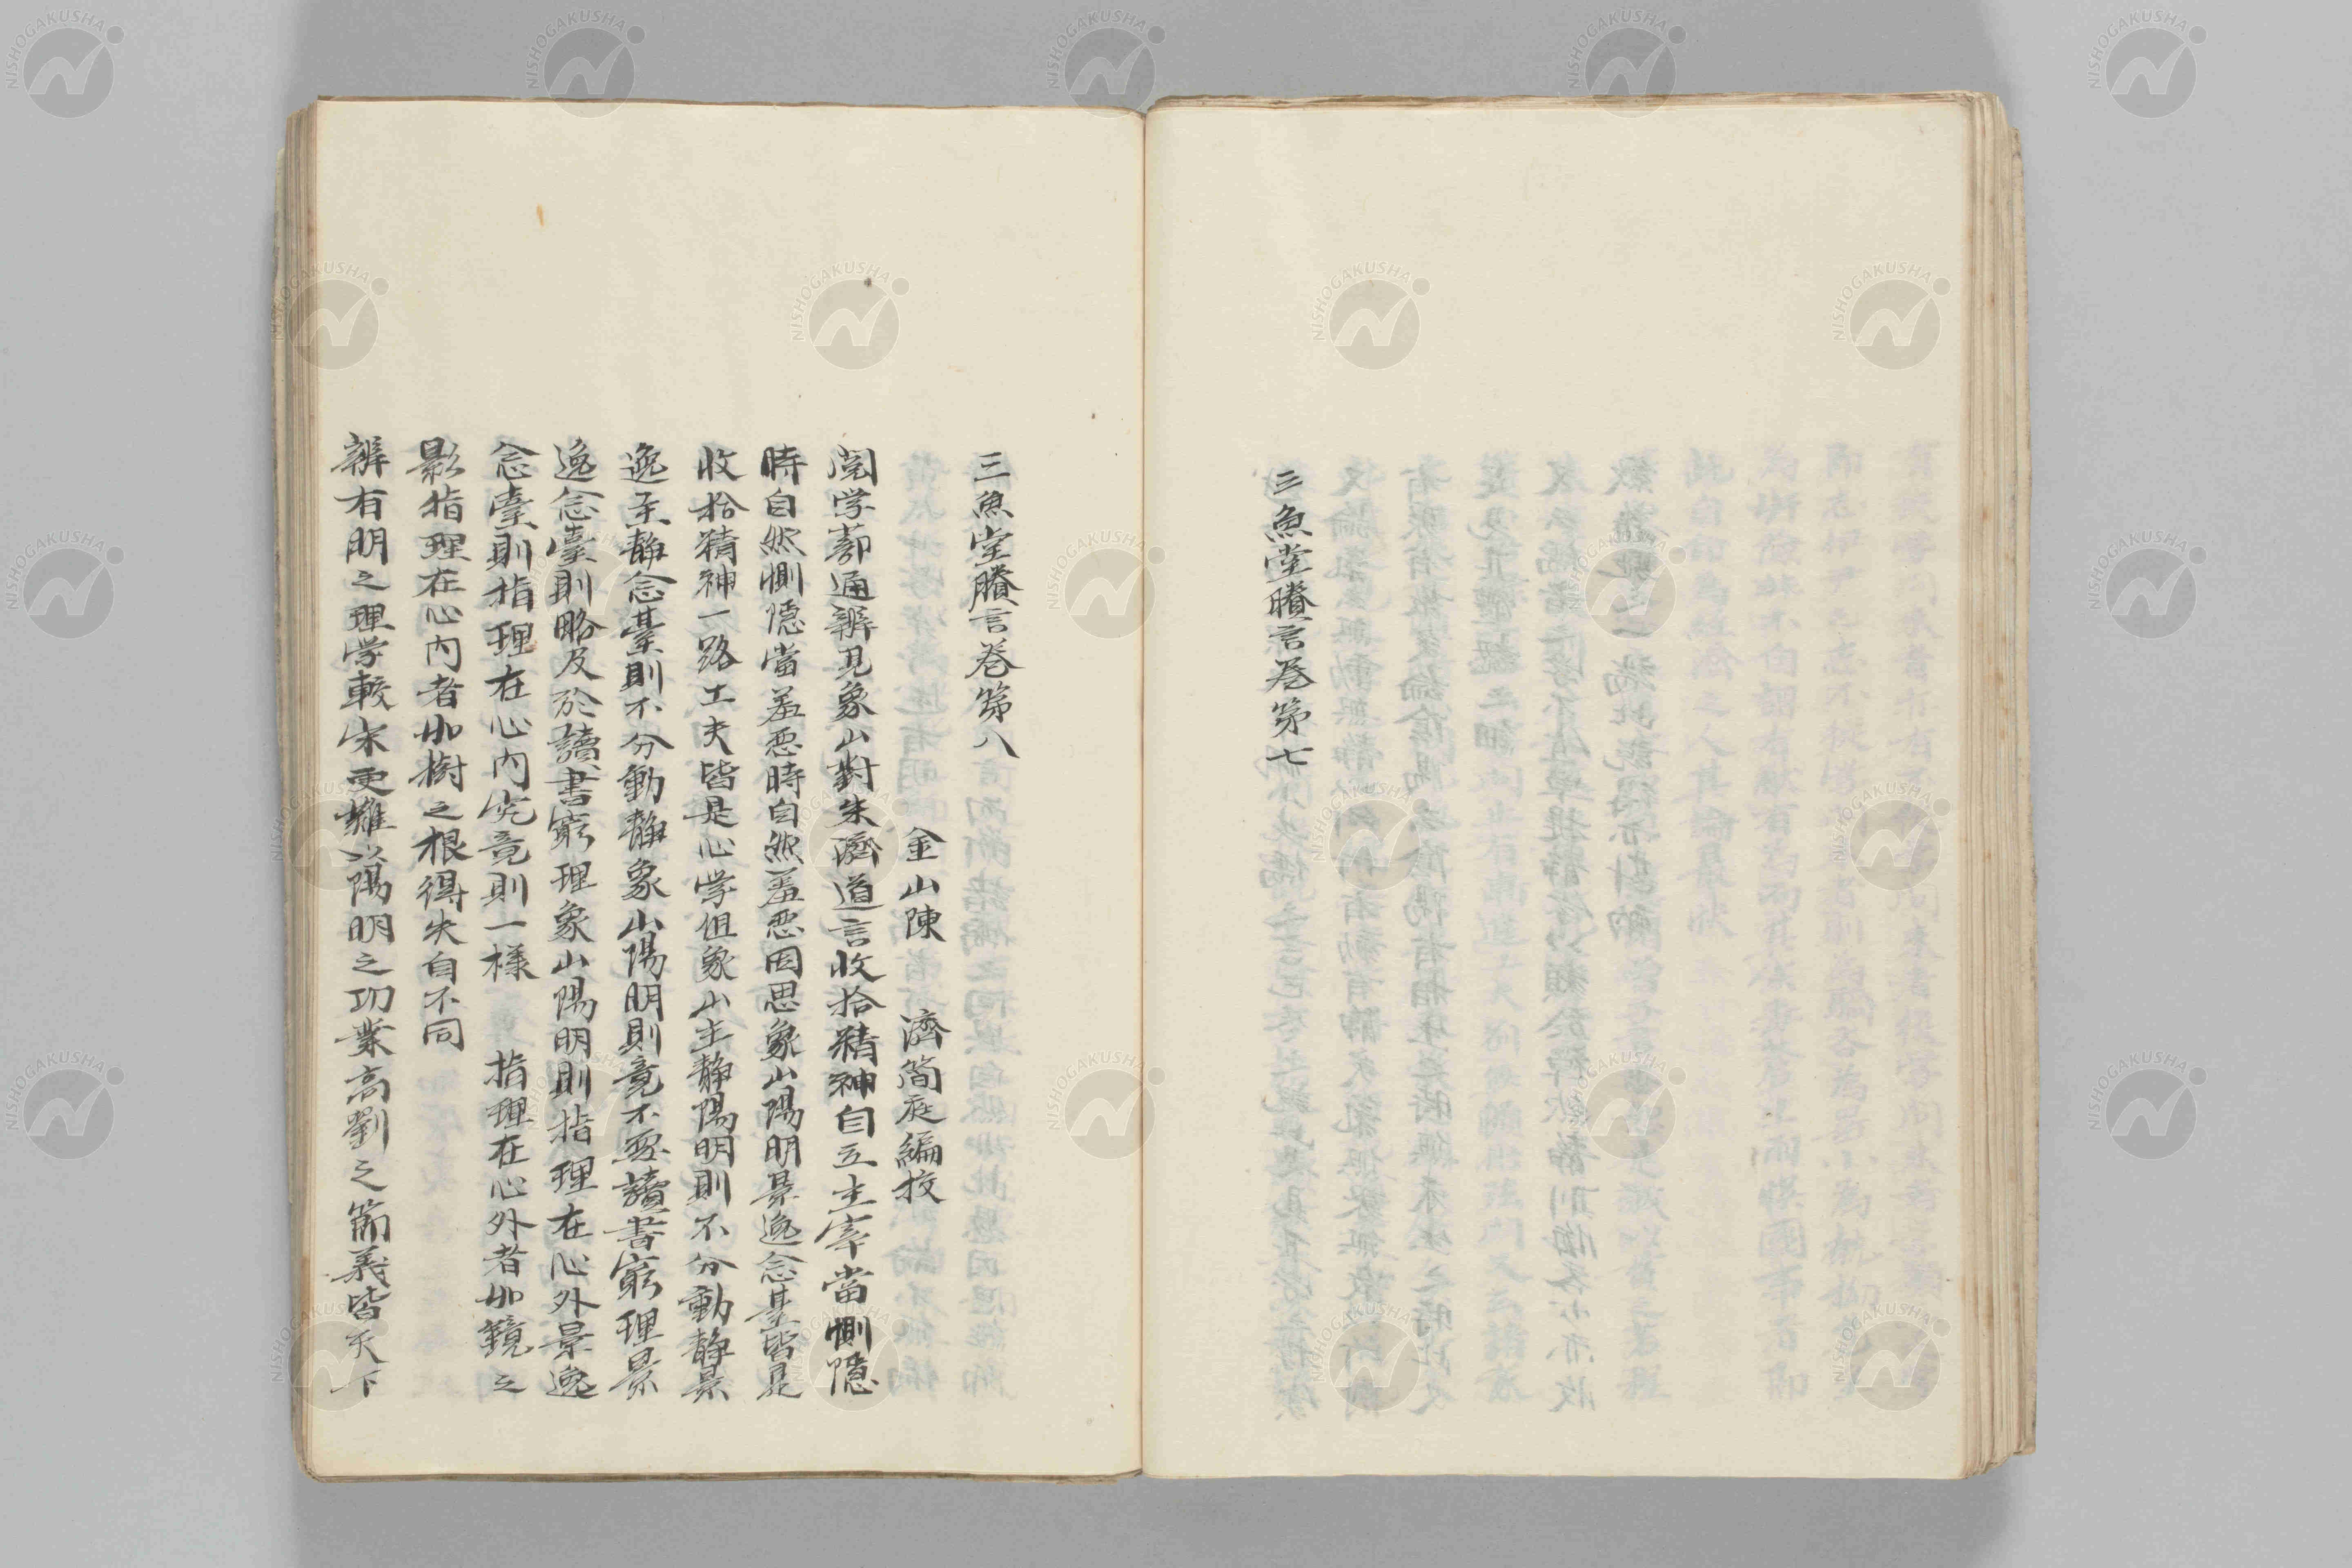 三魚堂賸言卷第七
三魚堂賸言卷第八
金山陳　濟簡庭編挍
閲学蔀通辨見象山對朱濟道言收拾精神自立主宰當惻隠
時自然惻隠當羞悪時自然羞悪因思象山陽明景逸念臺皆是
收拾精神一路工夫皆是心学但象山主静陽明則不分動静景
逸主静念臺則不分動静象山陽明則竟不要讀書窮理景
逸念臺則略及於讀書窮理象山陽明則指理在心外景逸
念臺則指理在心内究竟則一様　指理在心外者如鏡之
影指理在心内者如樹之根得失自不同
辨有明之理学較宋更難　陽明之功業高劉之節義皆天下
NISHOGAKUSHA